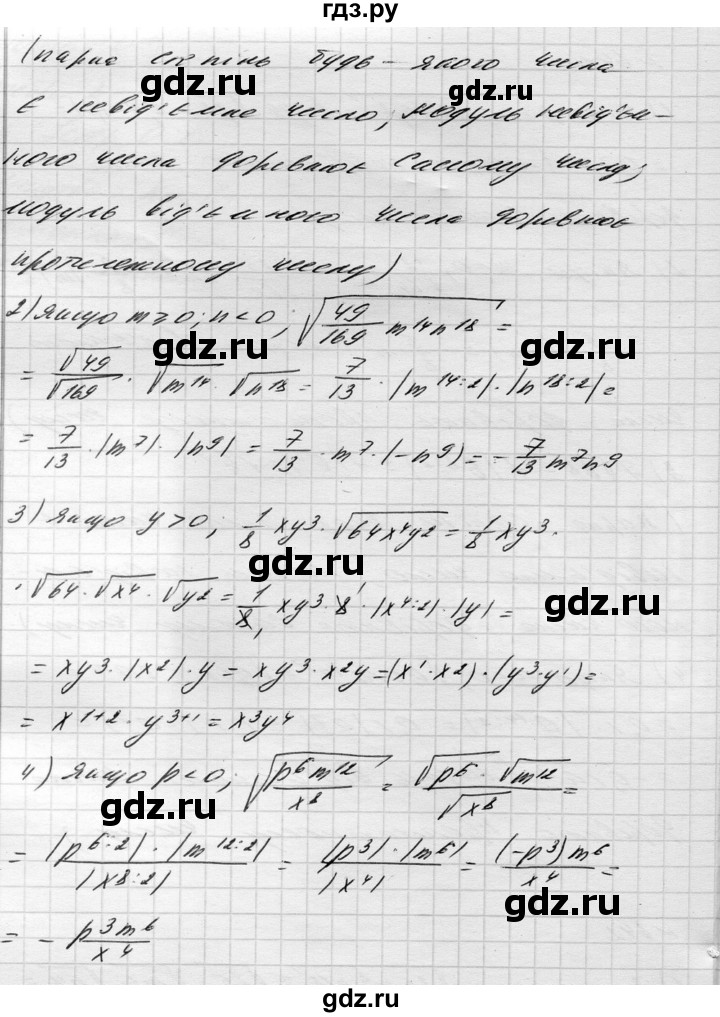 гдз.ру
(парна степінь будь-якого числа
є невід'ємне число, модуль невід'єм-
ного числа дорівнює самому числу;
модуль від'ємного числа дорівнює
протилежному числу)
gdz.ru gdz.ru
2) якщо m ≥ 0; n < 0; √(49/169 m¹⁴n¹⁸) =
= √49/√169 · √m¹⁴ · √n¹⁸ = 7/13 · |m^(14:2)| · |n^(18:2)| =
gdz.ru gdz.ru
= 7/13 · |m⁷| · |n⁹| = 7/13 · m⁷ · (-n⁹) = -7/13 m⁷n⁹
3) якщо y > 0; 1/8 xy³ · √(64x⁴y²) = 1/8 xy³ ·
gdz.ru gdz.ru
· √64 · √x⁴ · √y² = 1/8 xy³ · 8 · |x^(4:2)| · |y| =
= xy³ · |x²| · y = xy³ · x²y = (x¹ · x²) · (y³ · y¹) =
= x^(1+2) · y^(3+1) = x³y⁴
gdz.ru gdz.ru
4) якщо p < 0; √(p⁶m¹²/x⁸) = √p⁶ · √m¹²/√x⁸ =
= |p^(6:2)| · |m^(12:2)|/|x^(8:2)| = |p³| · |m⁶|/|x⁴| = (-p³)m⁶/x⁴ =
gdz.ru
= - p³m⁶/x⁴
gdz.ru